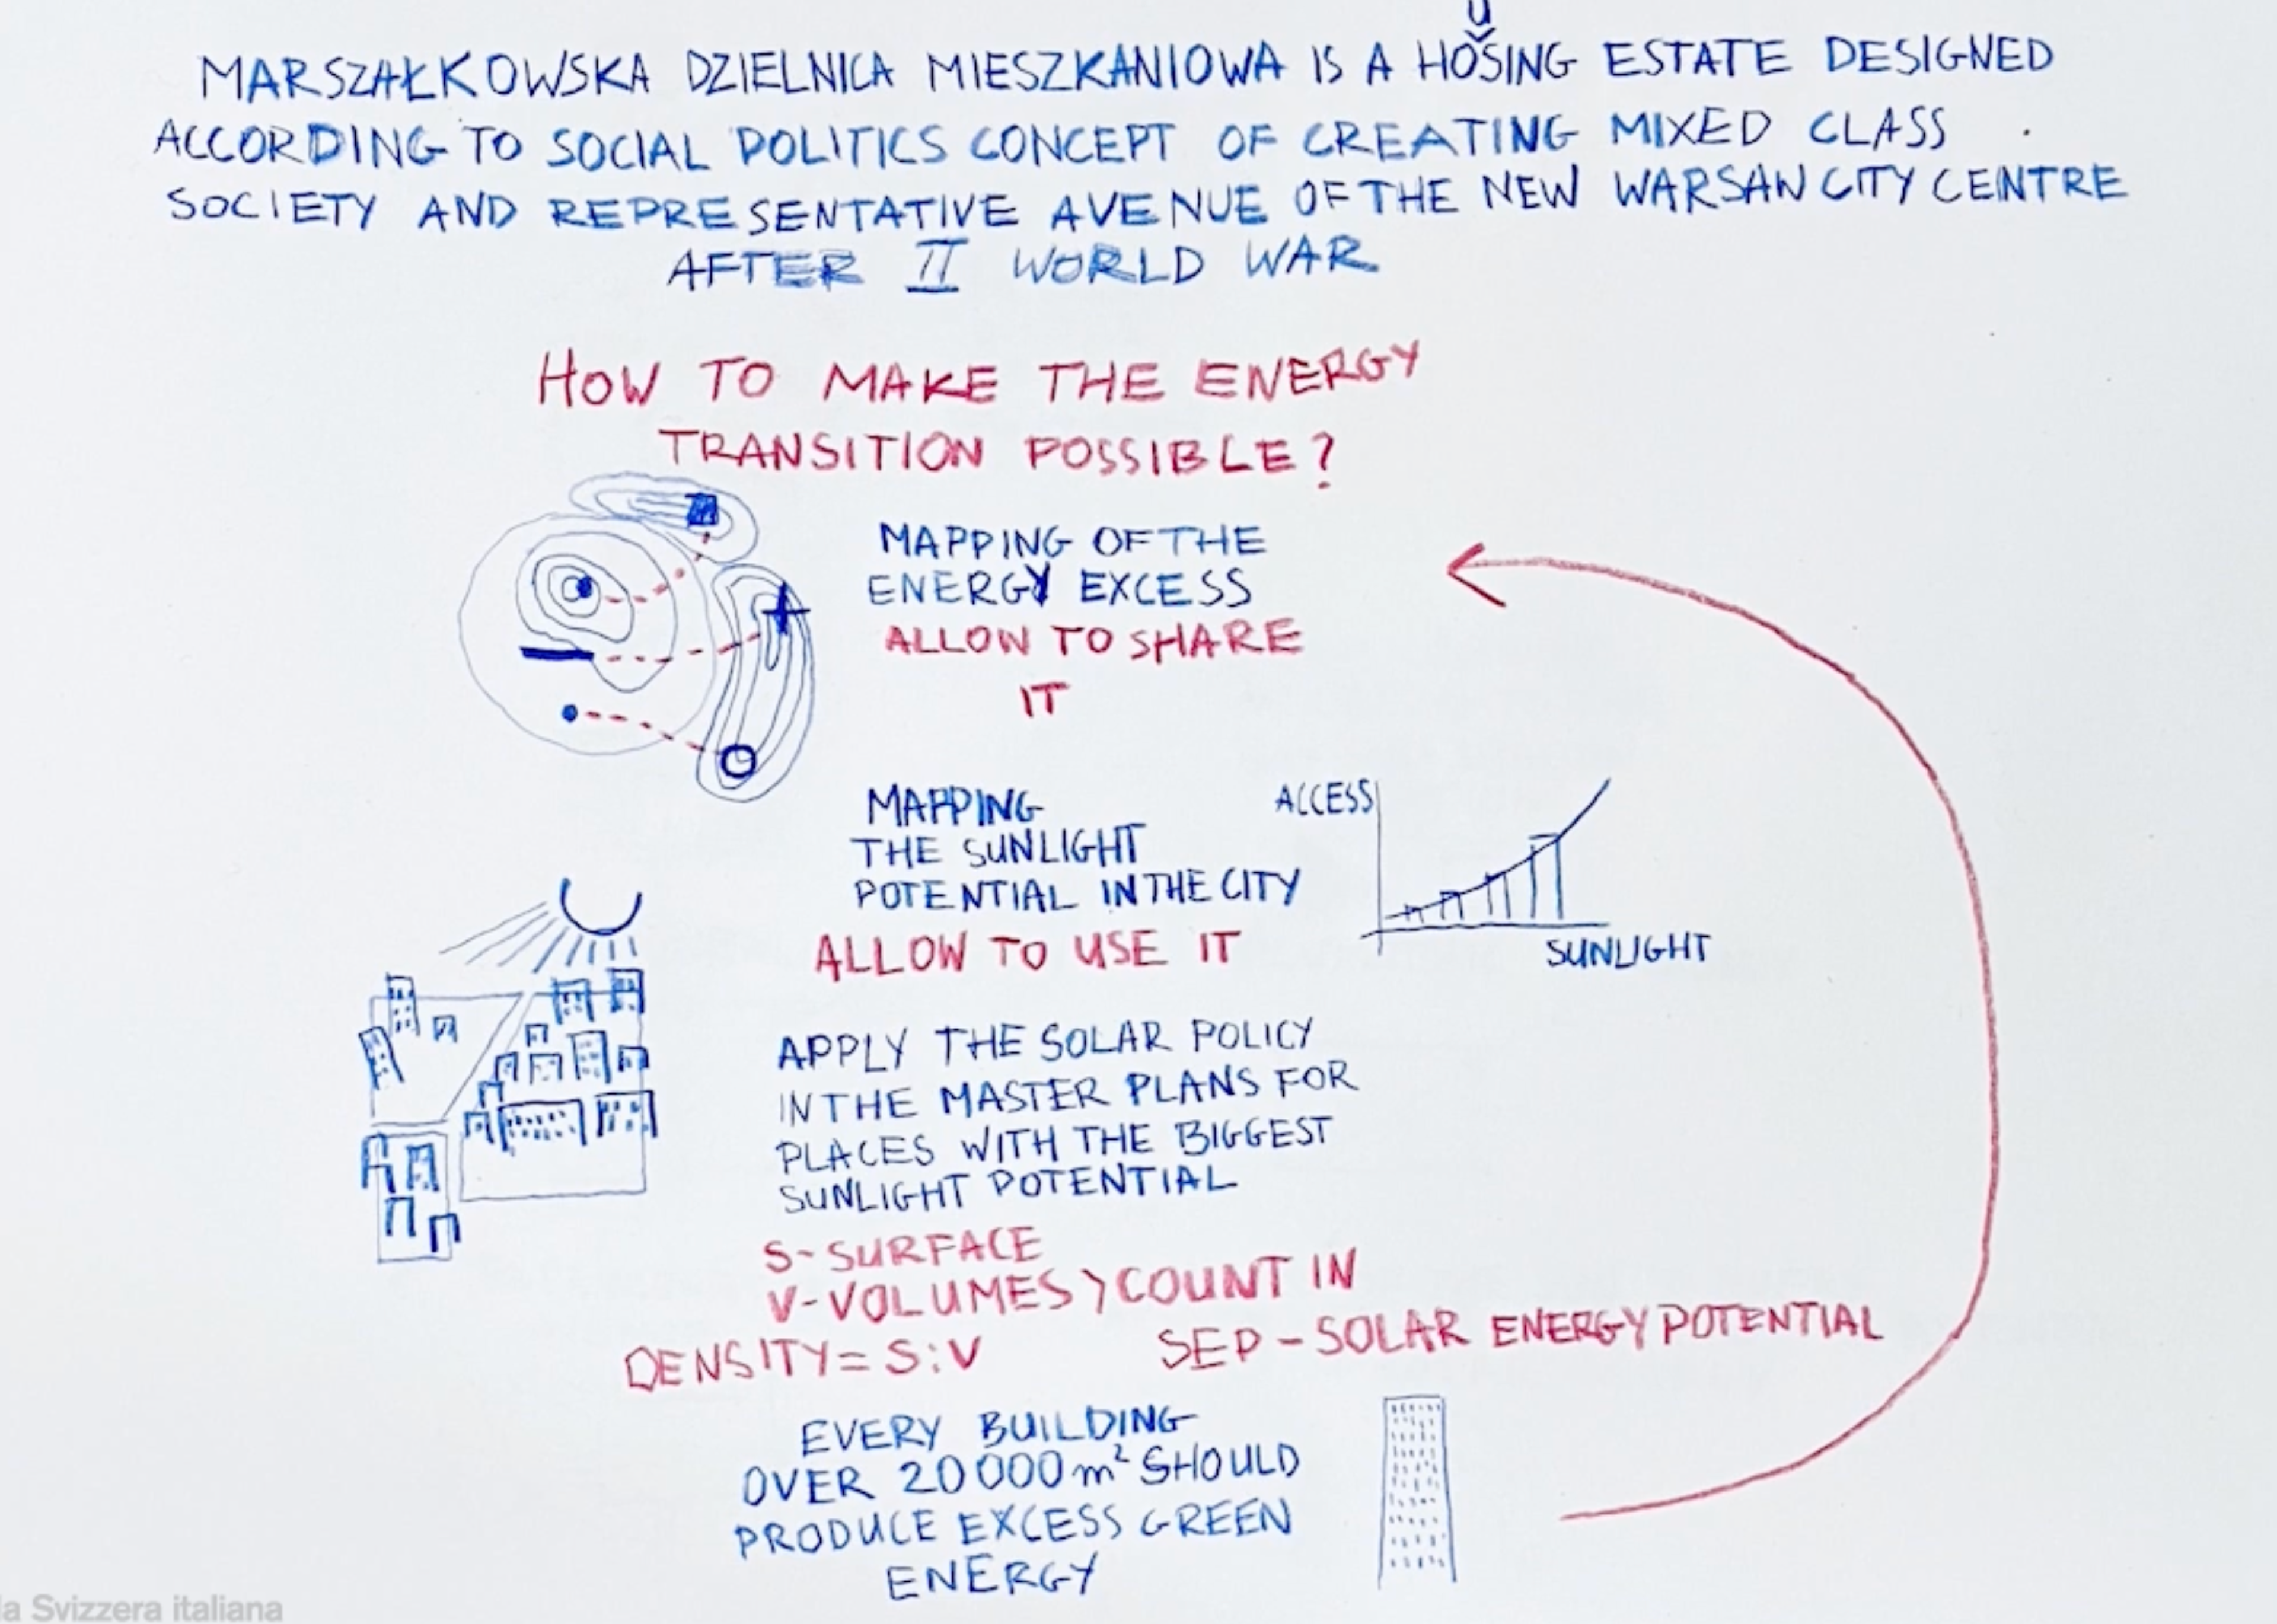 MARSZAŁKOWSKA DZIELNICA MIESZKANIOWA IS A HOUSING ESTATE DESIGNED
ACCORDING TO SOCIAL POLITICS CONCEPT OF CREATING MIXED CLASS
SOCIETY AND REPRESENTATIVE AVENUE OF THE NEW WARSAW CITY CENTRE
AFTER II WORLD WAR
HOW TO MAKE THE ENERGY
TRANSITION POSSIBLE?
MAPPING OF THE
ENERGY EXCESS
ALLOW TO SHARE
IT
MAPPING
THE SUNLIGHT
POTENTIAL IN THE CITY
ALLOW TO USE IT
ACCESS
SUNLIGHT
APPLY THE SOLAR POLICY
IN THE MASTER PLANS FOR
PLACES WITH THE BIGGEST
SUNLIGHT POTENTIAL
S-SURFACE
V-VOLUMES > COUNT IN
DENSITY = S:V
SEP - SOLAR ENERGY POTENTIAL
EVERY BUILDING
OVER 20 000 m² SHOULD
PRODUCE EXCESS GREEN
ENERGY
la Svizzera italiana